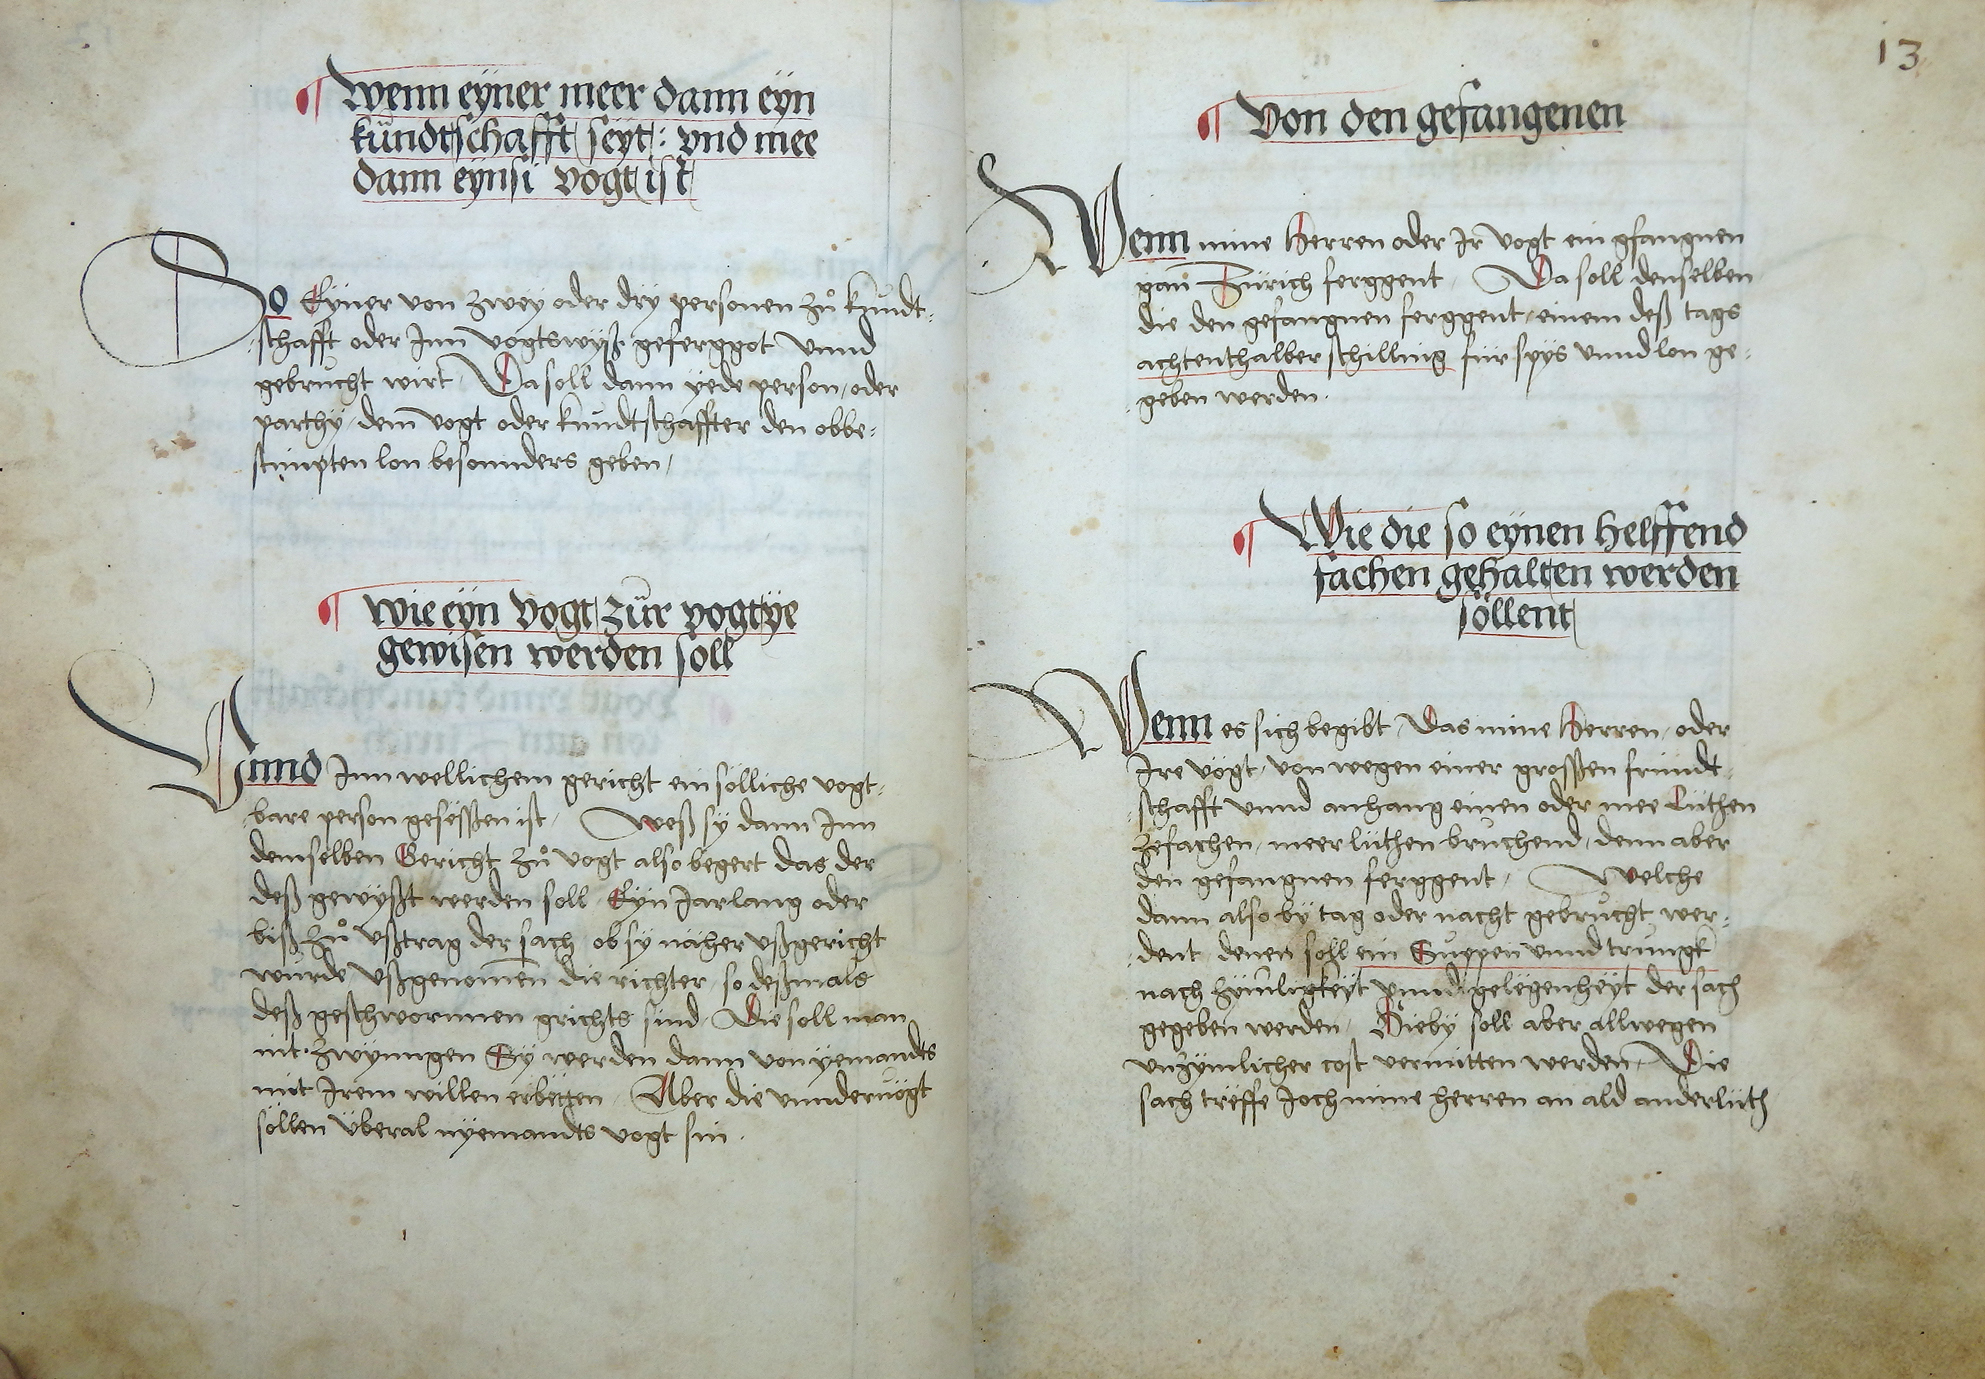 ¶ Wenn eyner meer dann eyn
kundtschafft seyt: vnd mee
dann eynsi vogt ist
So Eyner von zwey oder dry personen zů kundt-
schafft oder Inn vogtswyß geferggot Vnnd
gebrucht wirt / Da soll dann yede person / oder
parthÿ / dem vogt oder kundtschaffter den obbe-
stimpten lon besonnders geben /
¶ Wie eyn Vogt zur vogtÿe
gewisen werden soll
Vnnd Inn wellichem gericht ein sölliche vogt-
bare person gesëssen ist / Weß sÿ dann Inn
demselben Gericht zů vogt also begert das der
deß gewyßt werden soll Eyn Jar lang oder
biß zů vßtrag der sach ob sÿ näher vßgericht
wurde vßgenomen die richter / so deßmals
deß geschwornnen grichts sind / Die soll man
nit zwynngen Sy werden dann von yemandts
mit Irem willen erbëtten / Aber die vnndervögt
söllen Überal nyemandts vogt sin .
13
¶ Von den gefangenen
Wenn mine Herren oder Ir Vogt ein gfangnen
gan Zürich ferggent / Da soll denselben
die den gefangnen ferggent / einem deß tags
achtenthalber schilling für spÿs vnnd lon ge-
geben werden .
¶ Wie die so eynen helffend
fachen gehalten werden
söllent
Wenn es sich begibt / Das mine Herren / oder
Ire vögt / von wegen einer grossen fründt-
schafft vnnd anhang einen oder mee Lüthen
zefachen / meer lüthen bruchend / denn aber
den gefangnen ferggent / Welche
dann also bÿ tag oder nacht gebrucht wer-
dent denen soll ein Suppen vnnd trungk
nach zÿmligkeÿt vnnd gelëgenheÿt der sach
gegeben werden / Hieby soll aber allwegen
vnzÿmlicher cost vermitten werden / Die
sach trëffe Joch mine herren an ald ander lüth